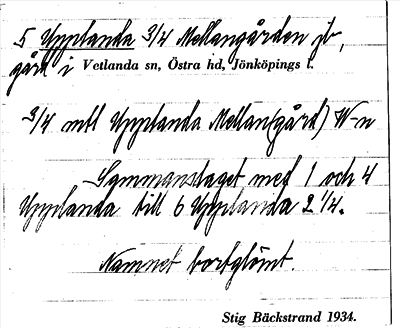 5 Upplanda 3/4 Mellangården jb,
gård i Vetlanda sn, Östra hd, Jönköpings l.
3/4 mtl Upplanda Mellan(gård) W-n
Sammanslaget med 1 och 4
Upplanda till 6 Upplanda 2 1/4.
Namnet bortglömt.
Stig Bäckstrand 1934.